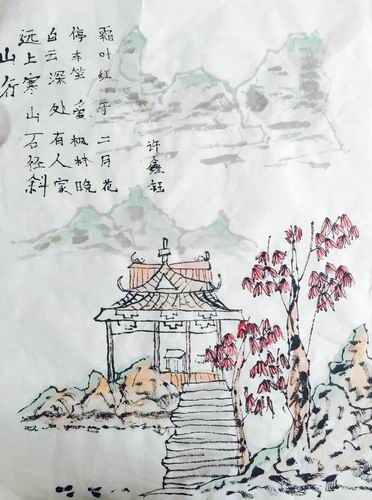 山行
远上寒山石径斜
白云深处有人家
停车坐爱枫林晚
霜叶红于二月花
许鑫钰